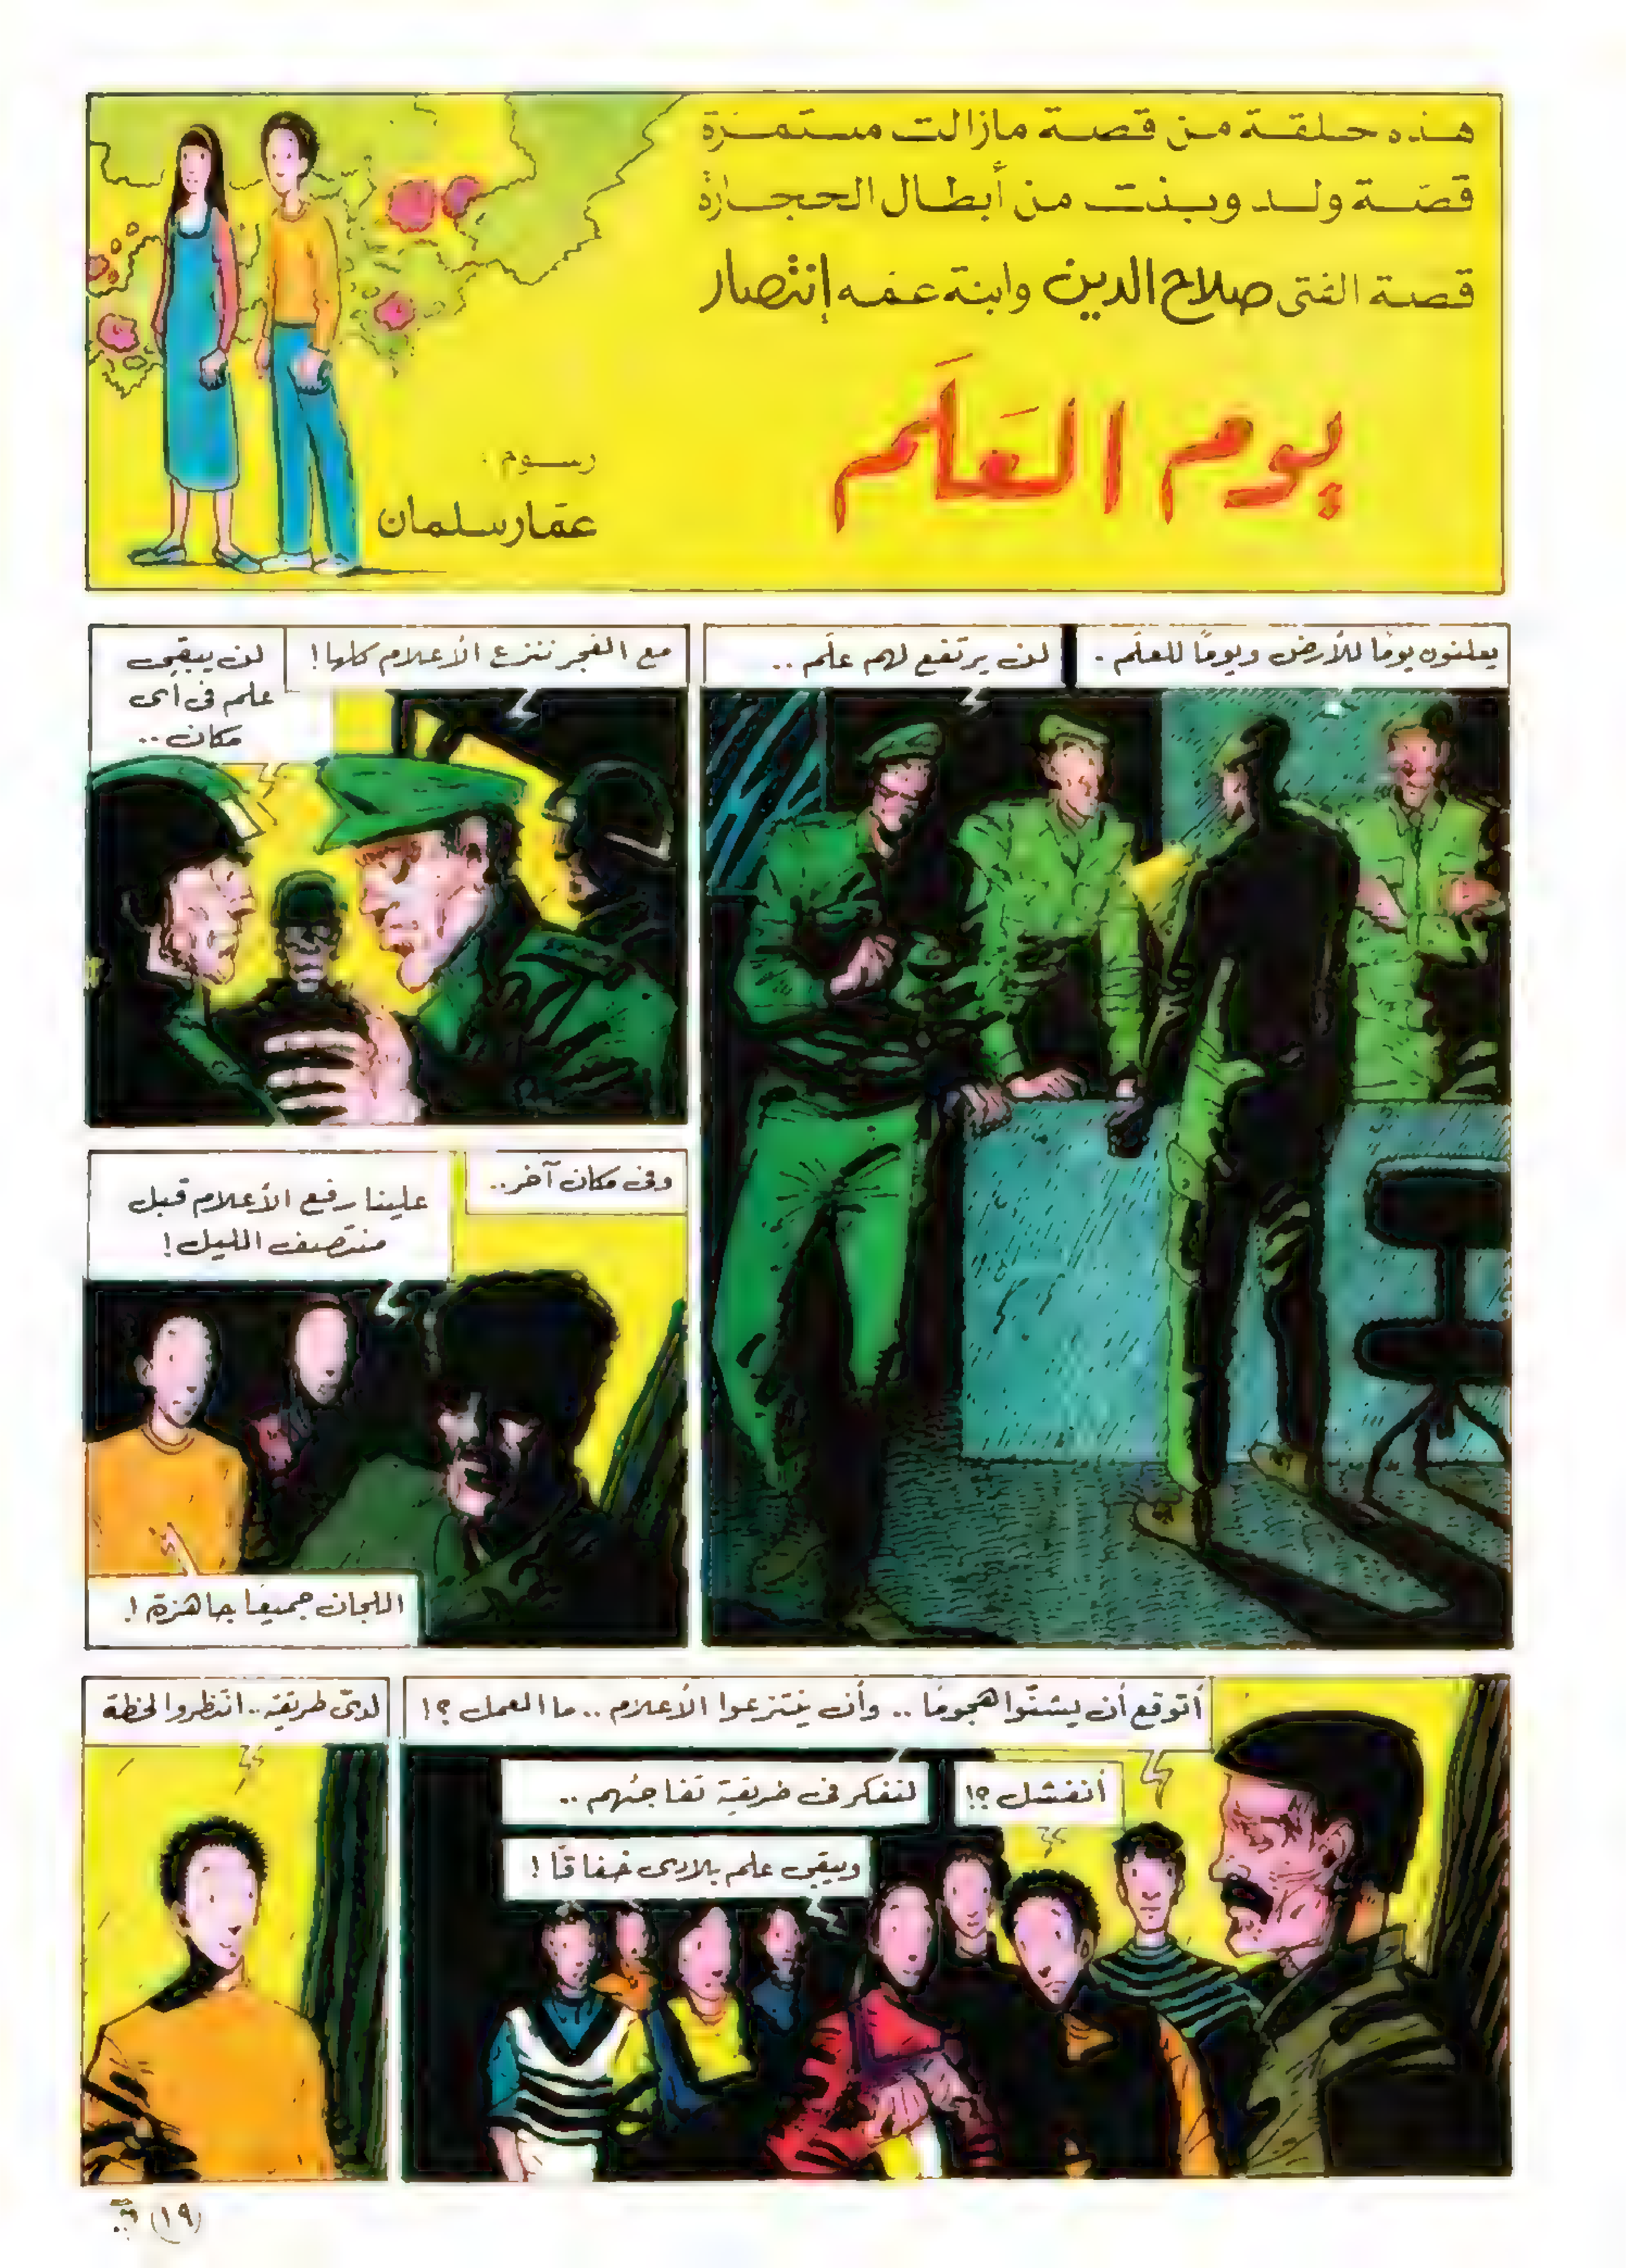 هذه حلقة من قصة مازالت مستمرة
قصة ولد وبنت من أبطال الحجارة
قصة الفتى صلاح الدين وابنة عمه إنتصار
يوم العَلَم
رسوم :
عمّار سلمان
يعلنون يومًا للأرض ويومًا للعلَم .
لن يرتفع لهم علَم ..
مع الفجر ننزع الأعلام كلها !
لن يبقى
علم فى أى
مكان ..
وفى مكان آخر ..
علينا رفع الأعلام قبل
منتصف الليل !
اللجان جميعًا جاهزة !
أتوقع أن يشنّوا هجومًا .. وأن ينتزعوا الأعلام .. ما العمل ؟!
أنفشل ؟!
لنفكر فى طريقة تفاجئهم ..
ويبقى علم بلادى خفاقًا !
لدىّ طريقة .. انتظروا لحظة
(١٩)